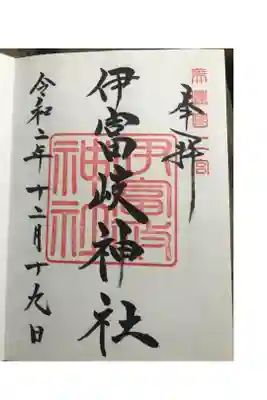 奉拝
伊富岐神社
伊富岐
神社
令和二年十二月十九日